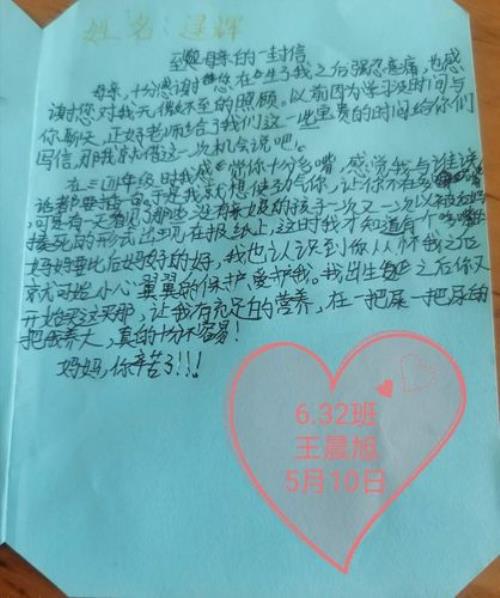 姓名：建辉
致母亲的一封信
母亲，十分感谢您在生了我之后强忍疼痛，也感
谢您对我无微不至的照顾。以前因为学习没时间与
你聊天，正好老师给了我们这一些宝贵的时间给你们
写信，那我就借这一次机会说吧。
在三四年级时我感觉你十分多嘴，感觉我与谁说
话都要插一手，于是我就想使劲气你，让你不在多
可是有一天看见了那些没有亲妈的孩子一次又一次以被后妈
的形式出现在报纸上，这时我才知道有个
妈妈要比后妈好的好，我也认识到你从怀我之后
就开始小心翼翼的保护，爱护我。我出生之后你又
开始买这买那，让我有充足的营养，在一把屎一把尿的
把我养大，真的十分不容易！
妈妈，你辛苦了!!!
6.32班
王晨旭
5月10日